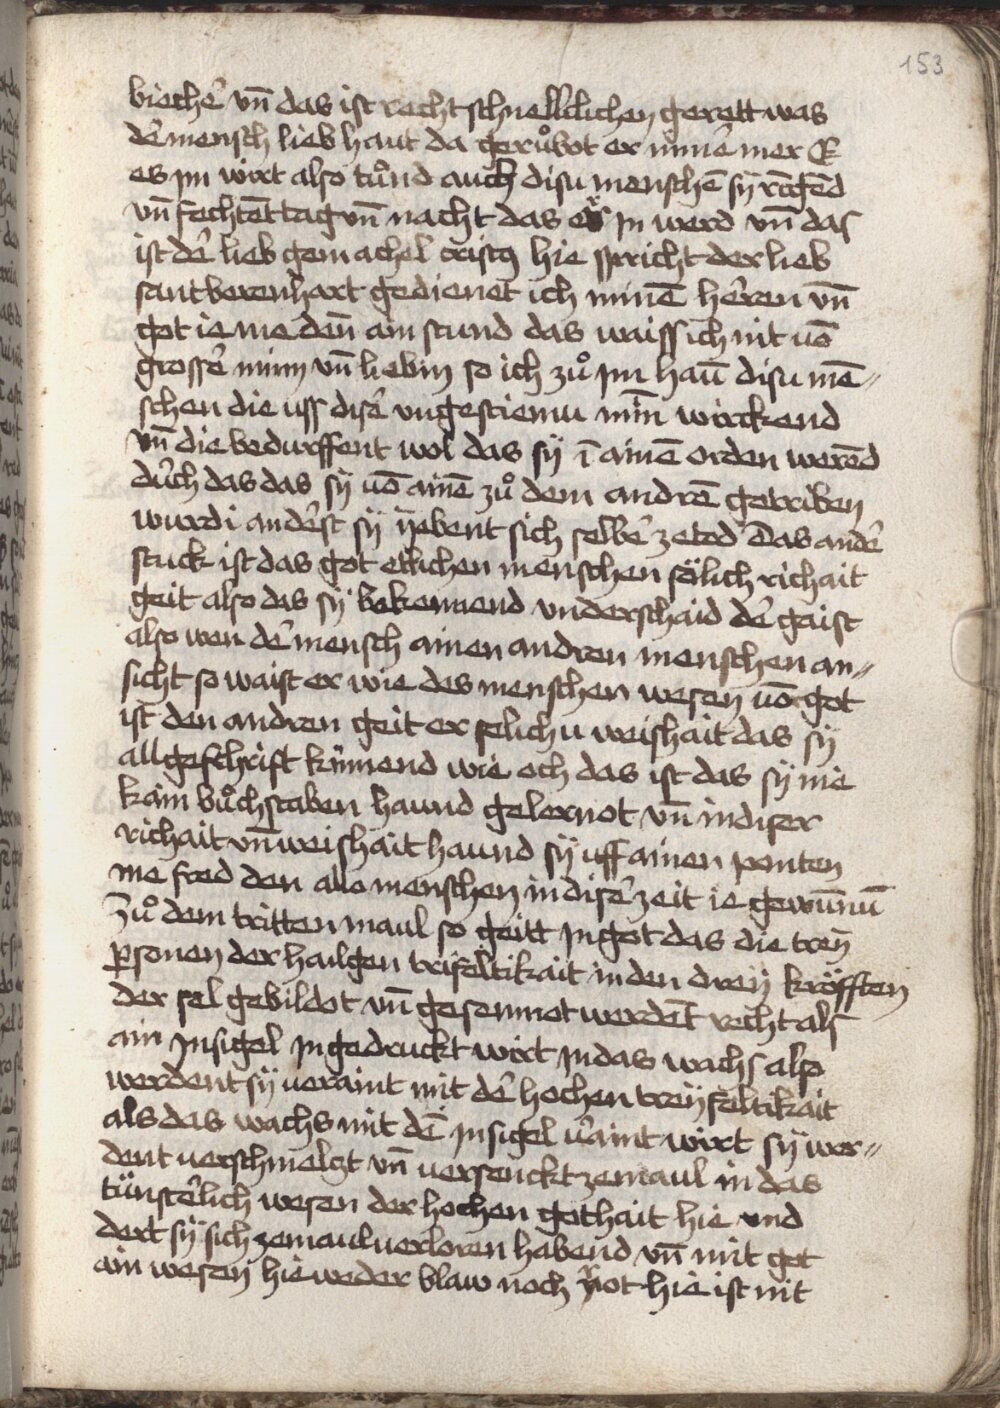 153
biecher vn̄ das ist recht schnelclichen gerett was
dē mensch lieb haut da geruͦbot er nimē mer E
es im wirt also tuͦnd auch disu menschē sy ringēd
vn̄ fechtēt tag vn̄ nacht das er In werd vn̄ das
ist dē lieb gemachel cristꝯ hie spricht der lieb
sant berenhart gedienet ich minē herren vn̄
got ie me den̄ ain stund das waiss ich nit uō
grossē minn vn̄ liebin so ich zuͦ im haū disu mē„
schen die uss disē vngestiemu min̄ wirckend
vn̄ die bedurffent wol das sy ī ainē orden werēd
durch das das sy uō ainē zuͦ dem andrē getriben
wurdi anderst sy yebent sich selbē ze tod Das andē
stuck ist das got etlichen menschen soͤlich richait
geit also das sy bekennend vnderschaid dē gaist
also wen dē mensch ainen andren menschen an„
sicht so waist er wie des menschen wesen uō got
ist den andren geit er selichu weishait das sy
all geschrift kūnnend wie och das ist das sy nie
kain buͦchstaben haund gelernot vn̄ in diser
richait vn̄ weishait haund sy uff ainen ponten
me fred den alle menschen in disē zeit ie gewūnnū
Zuͦ dem tritten maul so geitt In got das die trey
ꝑsonen der hailgen trifeltikait in den drey kroͤfften
der sel gebildot vn̄ gesennot werdent recht als
ain Insigel In gedruckt wirt In das wachs also
werdent sy ueraint mit dē hochen treyfeltikait
als das wachs mit dē Insigel ūaint wirt sy wer„
dent uerschmelgt vn̄ uersenckt zemaul in das
túnsterlich wesen der hochen gothait hie vnd
dert sy sich zemaul uerloren habend vn̄ mit got
ain wesen hie weder blaw noch rot hie ist nit